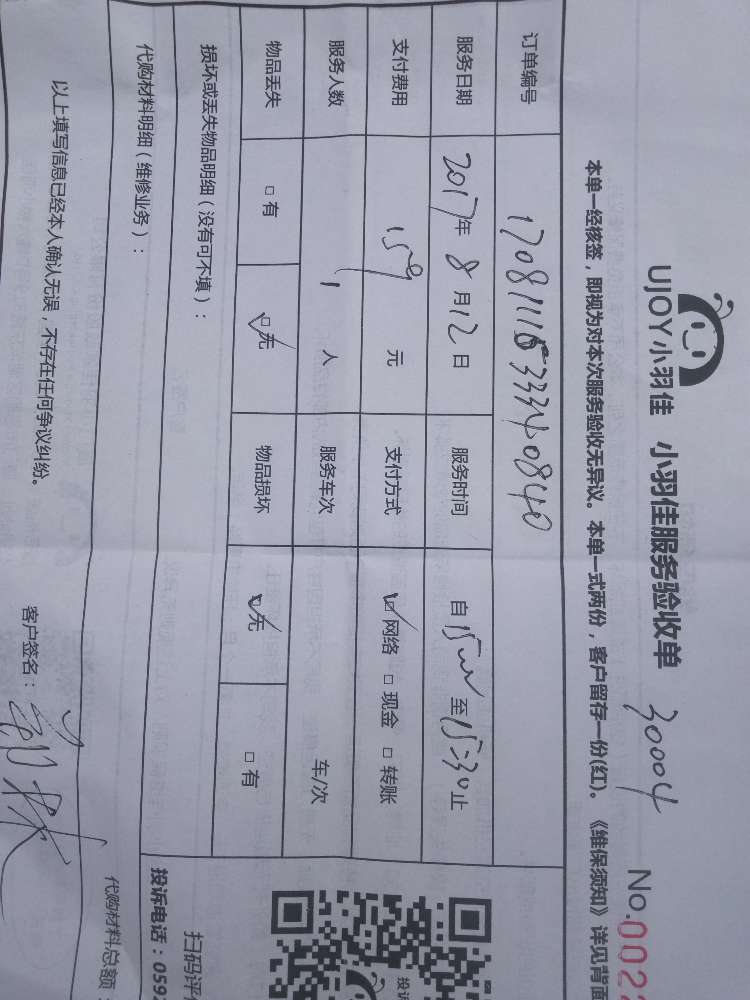 UJOY小羽佳 小羽佳服务验收单 30004 No.002
本单一经核签，即视为对本次服务验收无异议。本单一式两份，客户留存一份(红)。《维保须知》详见背面
订单编号
服务日期 2017年 8月12日 服务时间 自 至15:30止
支付费用 150 元 支付方式 ☑网络 □现金 □转账
服务人数 1 人 服务车次 车/次
物品丢失 □有 ☑无 物品损坏 ☑无 □有
损坏或丢失物品明细（没有可不填）：
代购材料明细（维修业务）：
以上填写信息已经本人确认无误，不存在任何争议纠纷。
客户签名：
代购材料总额：
扫码评
投诉电话：059
投诉